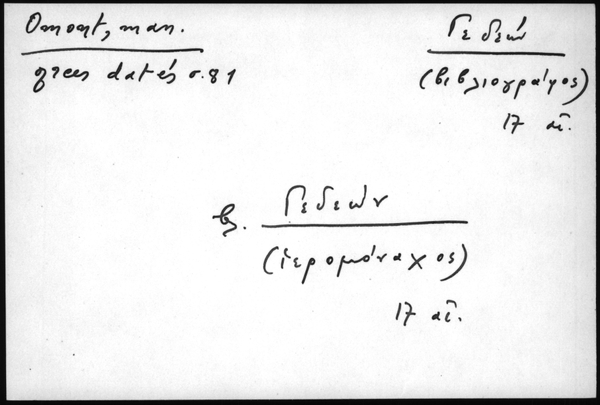 Omont, man.
grecs datés σ. 81
Γεδεών
(βιβλιογράφος)
17 αἰ.
βλ. Γεδεών
(ἱερομόναχος)
17 αἰ.